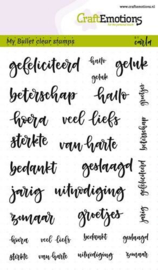 www.craftemotions.nl
CraftEmotions
My Bullet clear stamps
carla
gefeliciteerd hallo geluk
geluk
beterschap hallo groetjes
hoera veel liefs beterschap
sterkte van harte
bedankt geslaagd gefeliciteerd
jarig uitnodiging
zomaar groetjes jarig
hoera veel liefs bedankt geslaagd
sterkte van harte uitnodiging zomaar